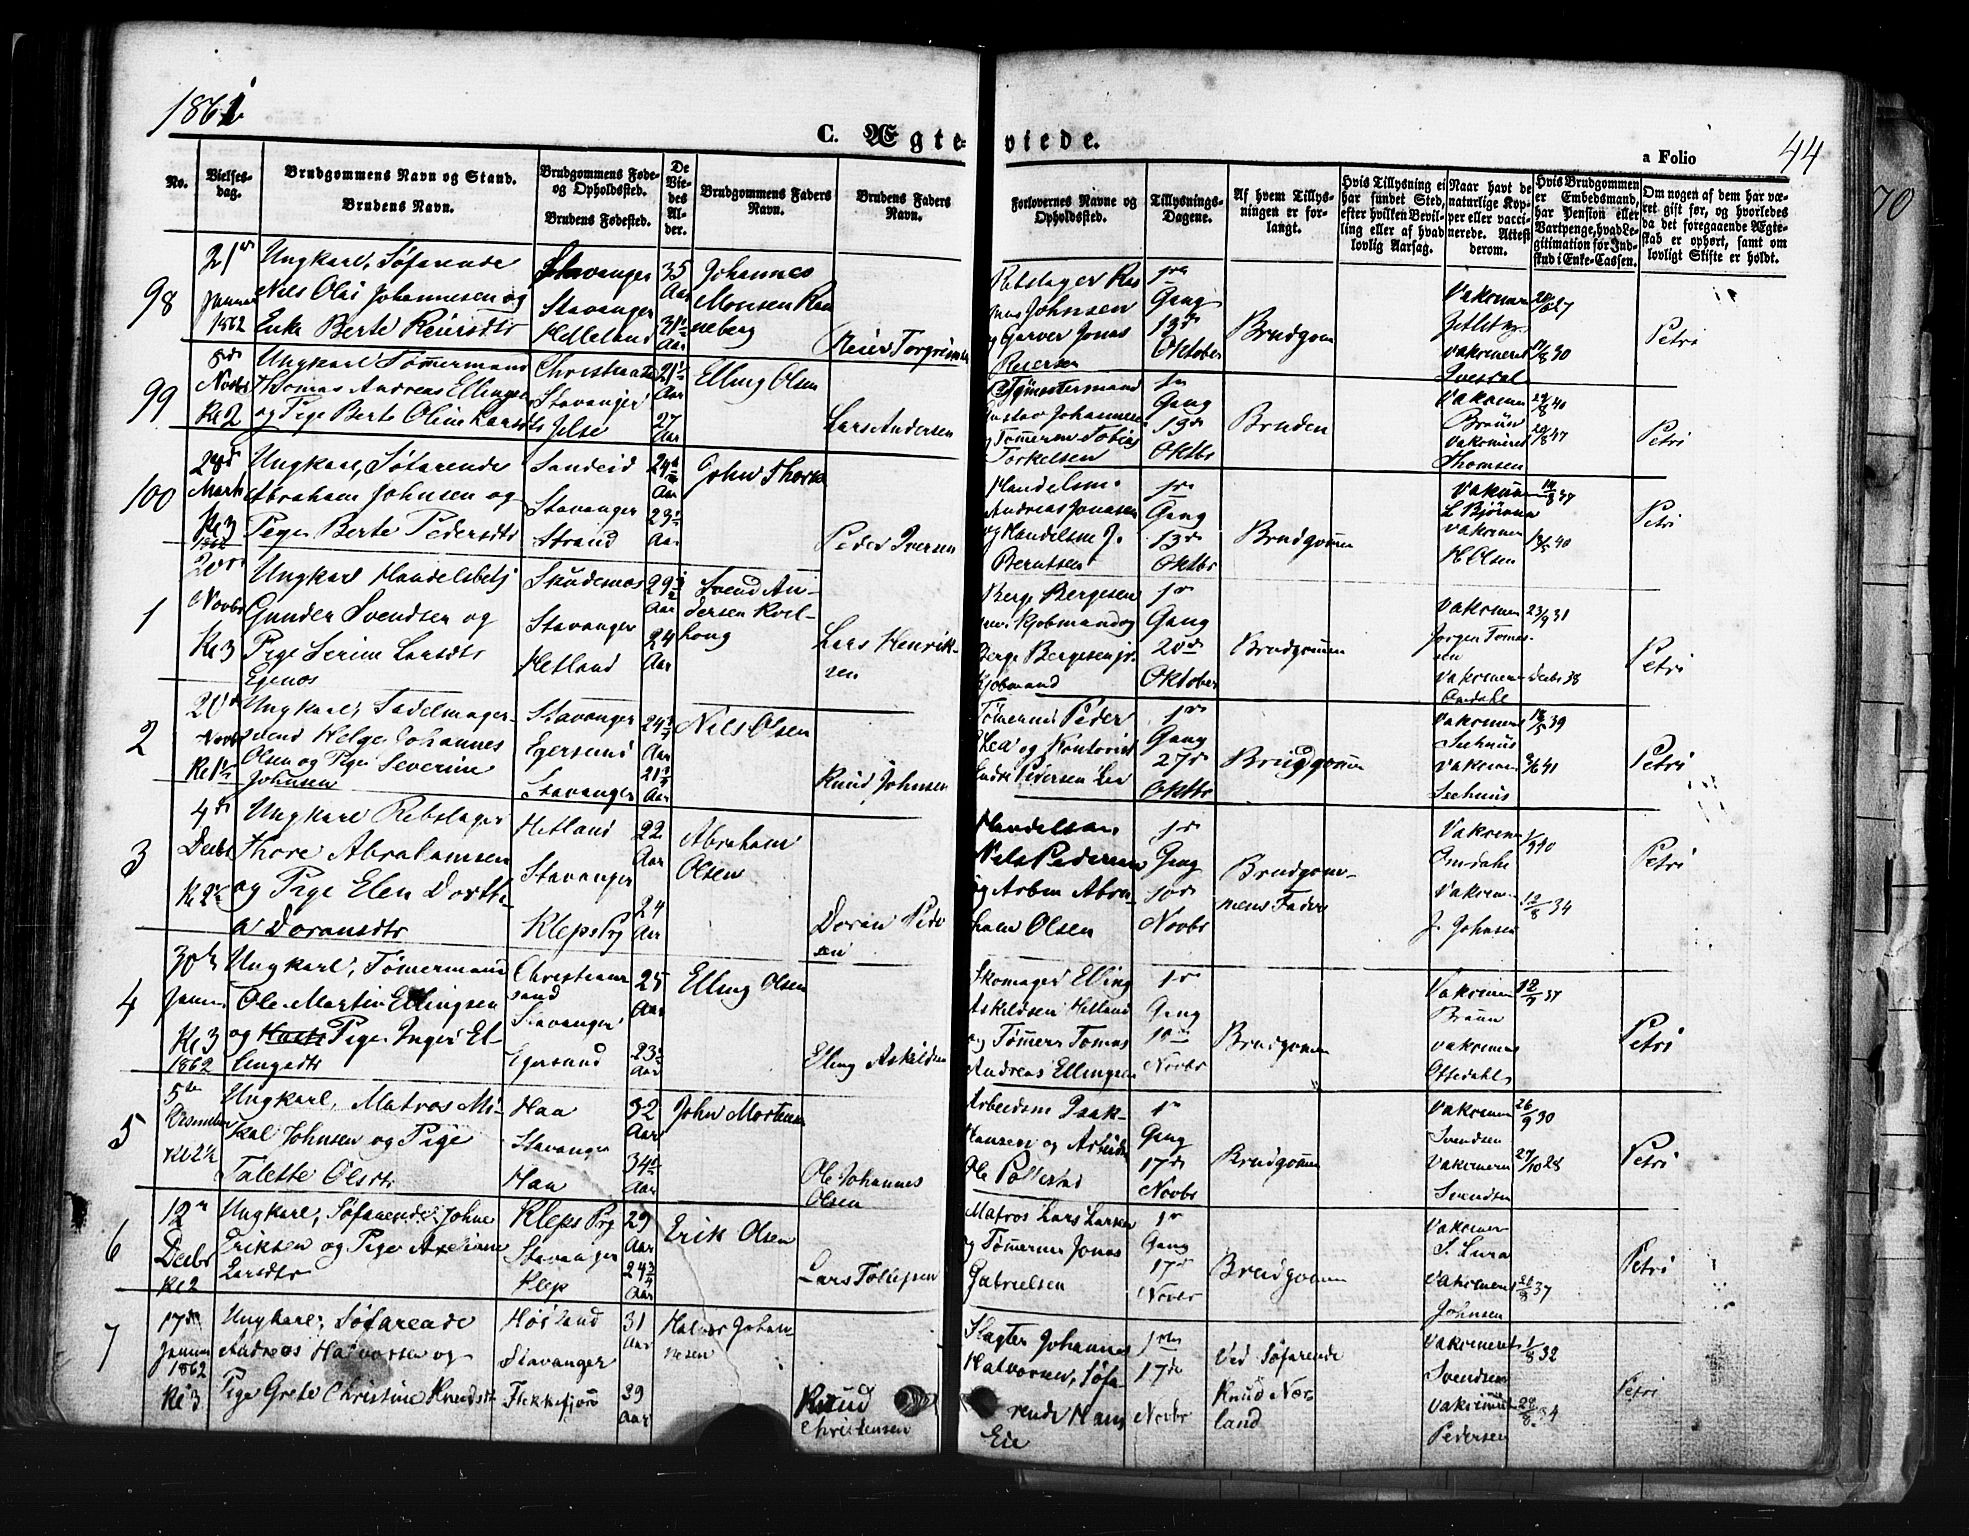 1861
C. Ægteviede.
a Folio 44
70
No.
Vielses-
dag.
Brudgommens Navn og Stand.
Brudens Navn.
Brudgommens Føde-
og Opholdssted.
Brudens Fødested.
De
Vie-
des
Al-
der.
Brudgommens Faders
Navn.
Brudens Faders
Navn.
Forlovernes Navne og
Opholdssted.
Tillysnings-
Dagene.
Af hvem Tillys-
ningen er for-
langt.
Hvis Tillysning ei
har fundet Sted,
efter hvilken Bevil-
ling eller af hvad
lovlig Aarsag.
Naar havt de
naturlige Kop-
per eller vacci-
nerede. Attest
derom.
Hvis Brudgommen
er Embedsmand,
har Pension eller
Vartpenge, hvad Le-
gitimation for Ind-
skud i Enke-Cassen.
Om nogen af dem har væ-
ret gift før, og hvorledes
da det foregaaende Ægte-
skab er ophørt, samt om
lovligt Skifte er holdt.
98
1862
Ungkarl, Søfarende
Nils Olai Johannesen og
Enke Berte Reiersdtr
Stavanger
Stavanger
Helleland
35
Aar
31½
Aar
Johannes
Monsen Ran
neberg
Reier Torgrimsen
Johnsen
og Garver Jonas
1ste
Gang
13de
Oktober
Brudgom
Vakcinen
Petri
99
8de
Novbr
Kl 2
Ungkarl Tømermand
Thomas Andreas Ellingsen
og Pige Berte Oline Larsdtr
Stavanger
Jelse
21½
Aar
27
Aar
Elling Olsen
Lars Andersen
Gustav Johannesen
og Tømerm Tobias
Torkelsen
Gang
13de
Oktbr
Bruden
Vakcinen
Bruun
29/8 40
Vakcineret
Thomsen
Petri
100
Kl 3
1862
Ungkarl, Søfarende
Abraham Johnsen og
Pige Berte Pedersdtr
Sandeid
Stavanger
Strand
Aar
23½
Aar
John Thors
Peder Iversen
Handelsm.
Andreas Jonasen
og Handelsm J.
Berntsen
Gang
13de
Oktbr
Brudgommen
Vakcinen
Vakcinen
H Olsen
Petri
1
20de
Novbr
Kl 3
Ungkarl Handelsbetj
Gunder Svendsen og
Pige Serine Larsdtr
Egenes
Skudesnes
Stavanger
Hetland
Aar
24
Aar
Svend An-
dersen Kvel-
hong
Lars Henrik-
sen
Berge Bergesen
sen. Kjobmand og
Berge Bergesen jr.
Kjobmand
Gang
20de
Oktober
Brudgommen
Vakcinen 23/9 31
Jørgen Tomas-
sen
Vakcinen Decbr 38
Omdahl
Petri
2
20de
Novbr
Ungkarl, Sadelmager-
svend Helge Johannes
Olsen og Pige Severine
Johnsen
Stavanger
Egersund
Stavanger
Aar
Aar
Nils Olsen
Knud Johnsen
Tømerm Peder
Lea og Kontorist
Endre Pedersen Lea
Gang
27de
Oktbr
Brudgommen
Vakcinen 39
Seehuus
Vakcinen 41
Seehuus
Petri
3
4de
Decbr
Ungkarl Rebslager
Thore Abrahamsen
og Pige Elen Dorth-
ea Doransdtr
Hetland
Stavanger
Kleps Prg
22
Aar
24
Aar
Abraham
Olsen
Doran Peder
sen
Handelsm.
Nils Pedersen
og Arbm Abra-
ham Olsen
Gang
10de
Novbr
Brudgom-
mens Fader
Vakcinen
Omdahl
Vakcinen 12/8 34
J. Johnsen
Petri
4
30te
Kl 3
1862
Ungkarl, Tømermand
Ole Martin Ellingsen
og Pige Inger El-
lingsdtr
Christian
sand
Stavanger
Egersund
25
Aar
23½
Aar
Elling Olsen
Elling Askildsen
Skomager Elling
Askildsen Hetland
og Tømerm Tomas
Andreas Ellingsen
Gang
10de
Novbr
Brudgommen
Vakcinen
Bruun
Vakcinen
Ossedahl
Petri
5
5te
Kl 2½
Ungkarl, Matros Mi-
kal Johnsen og Pige
Talette Olsdtr
Haa
Stavanger
Haa
32
Aar
34½
Aar
John Mortensen
Ole Johannes
Olsen
Arbeidsm Isak
Hansen og Arbeidsm
Ole Pollestad
Gang
17de
Novbr
Brudgommen
Vakcinen 26/9 30
Svendsen
Vakcinen 27/10 28
Svendsen
Petri
6
12te
Decbr
Kl 2
Ungkarl, Søfarende Johne
Eriksen og Pige Axeliane
Larsdtr
Kleps Prg
Stavanger
Klep
29
Aar
24¾
Aar
Erik Olsen
Lars Tollefsen
Matros Lars Larsen
og Tømerm Jonas
Gabrielsen
Gang
17de
Novbr
Brudgommen
Vakcinen
S. Lura
Vakcinen 37
Johnsen
Petri
7
17de
1862
Kl 3
Ungkarl, Søfarende
Andreas Halvorsen og
Pige Grete Christine Knudsdtr
Høiland
Stavanger
Flekkefjord
31
Aar
39
Aar
Halvor Johan-
nesen
Knud
Christensen
Slagter Johannes
Halvorsen, Søfa-
rende Hans
Eie
17de
Novbr
Ved Søfarende
Knud Nor-
land
Vakcineret 1/8 32
Svendsen
Vakcineret 28/8 34
Pedersen
Petri